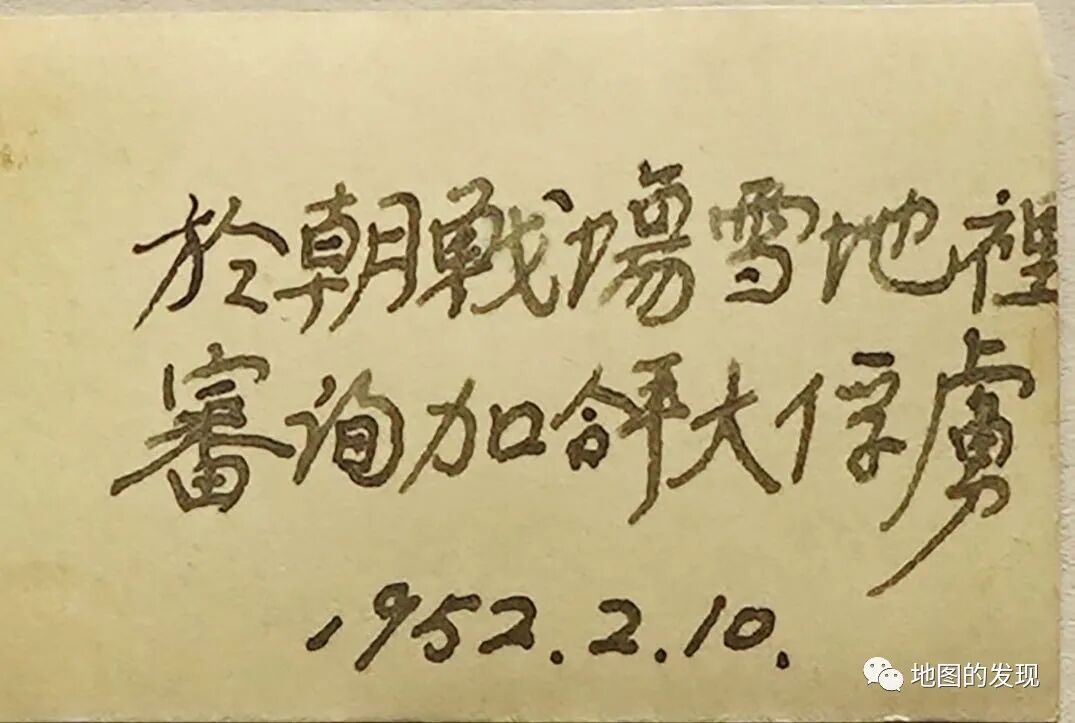 於朝戰場雪地裡
審詢加拿大俘虜
1952.2.10.
地图的发现